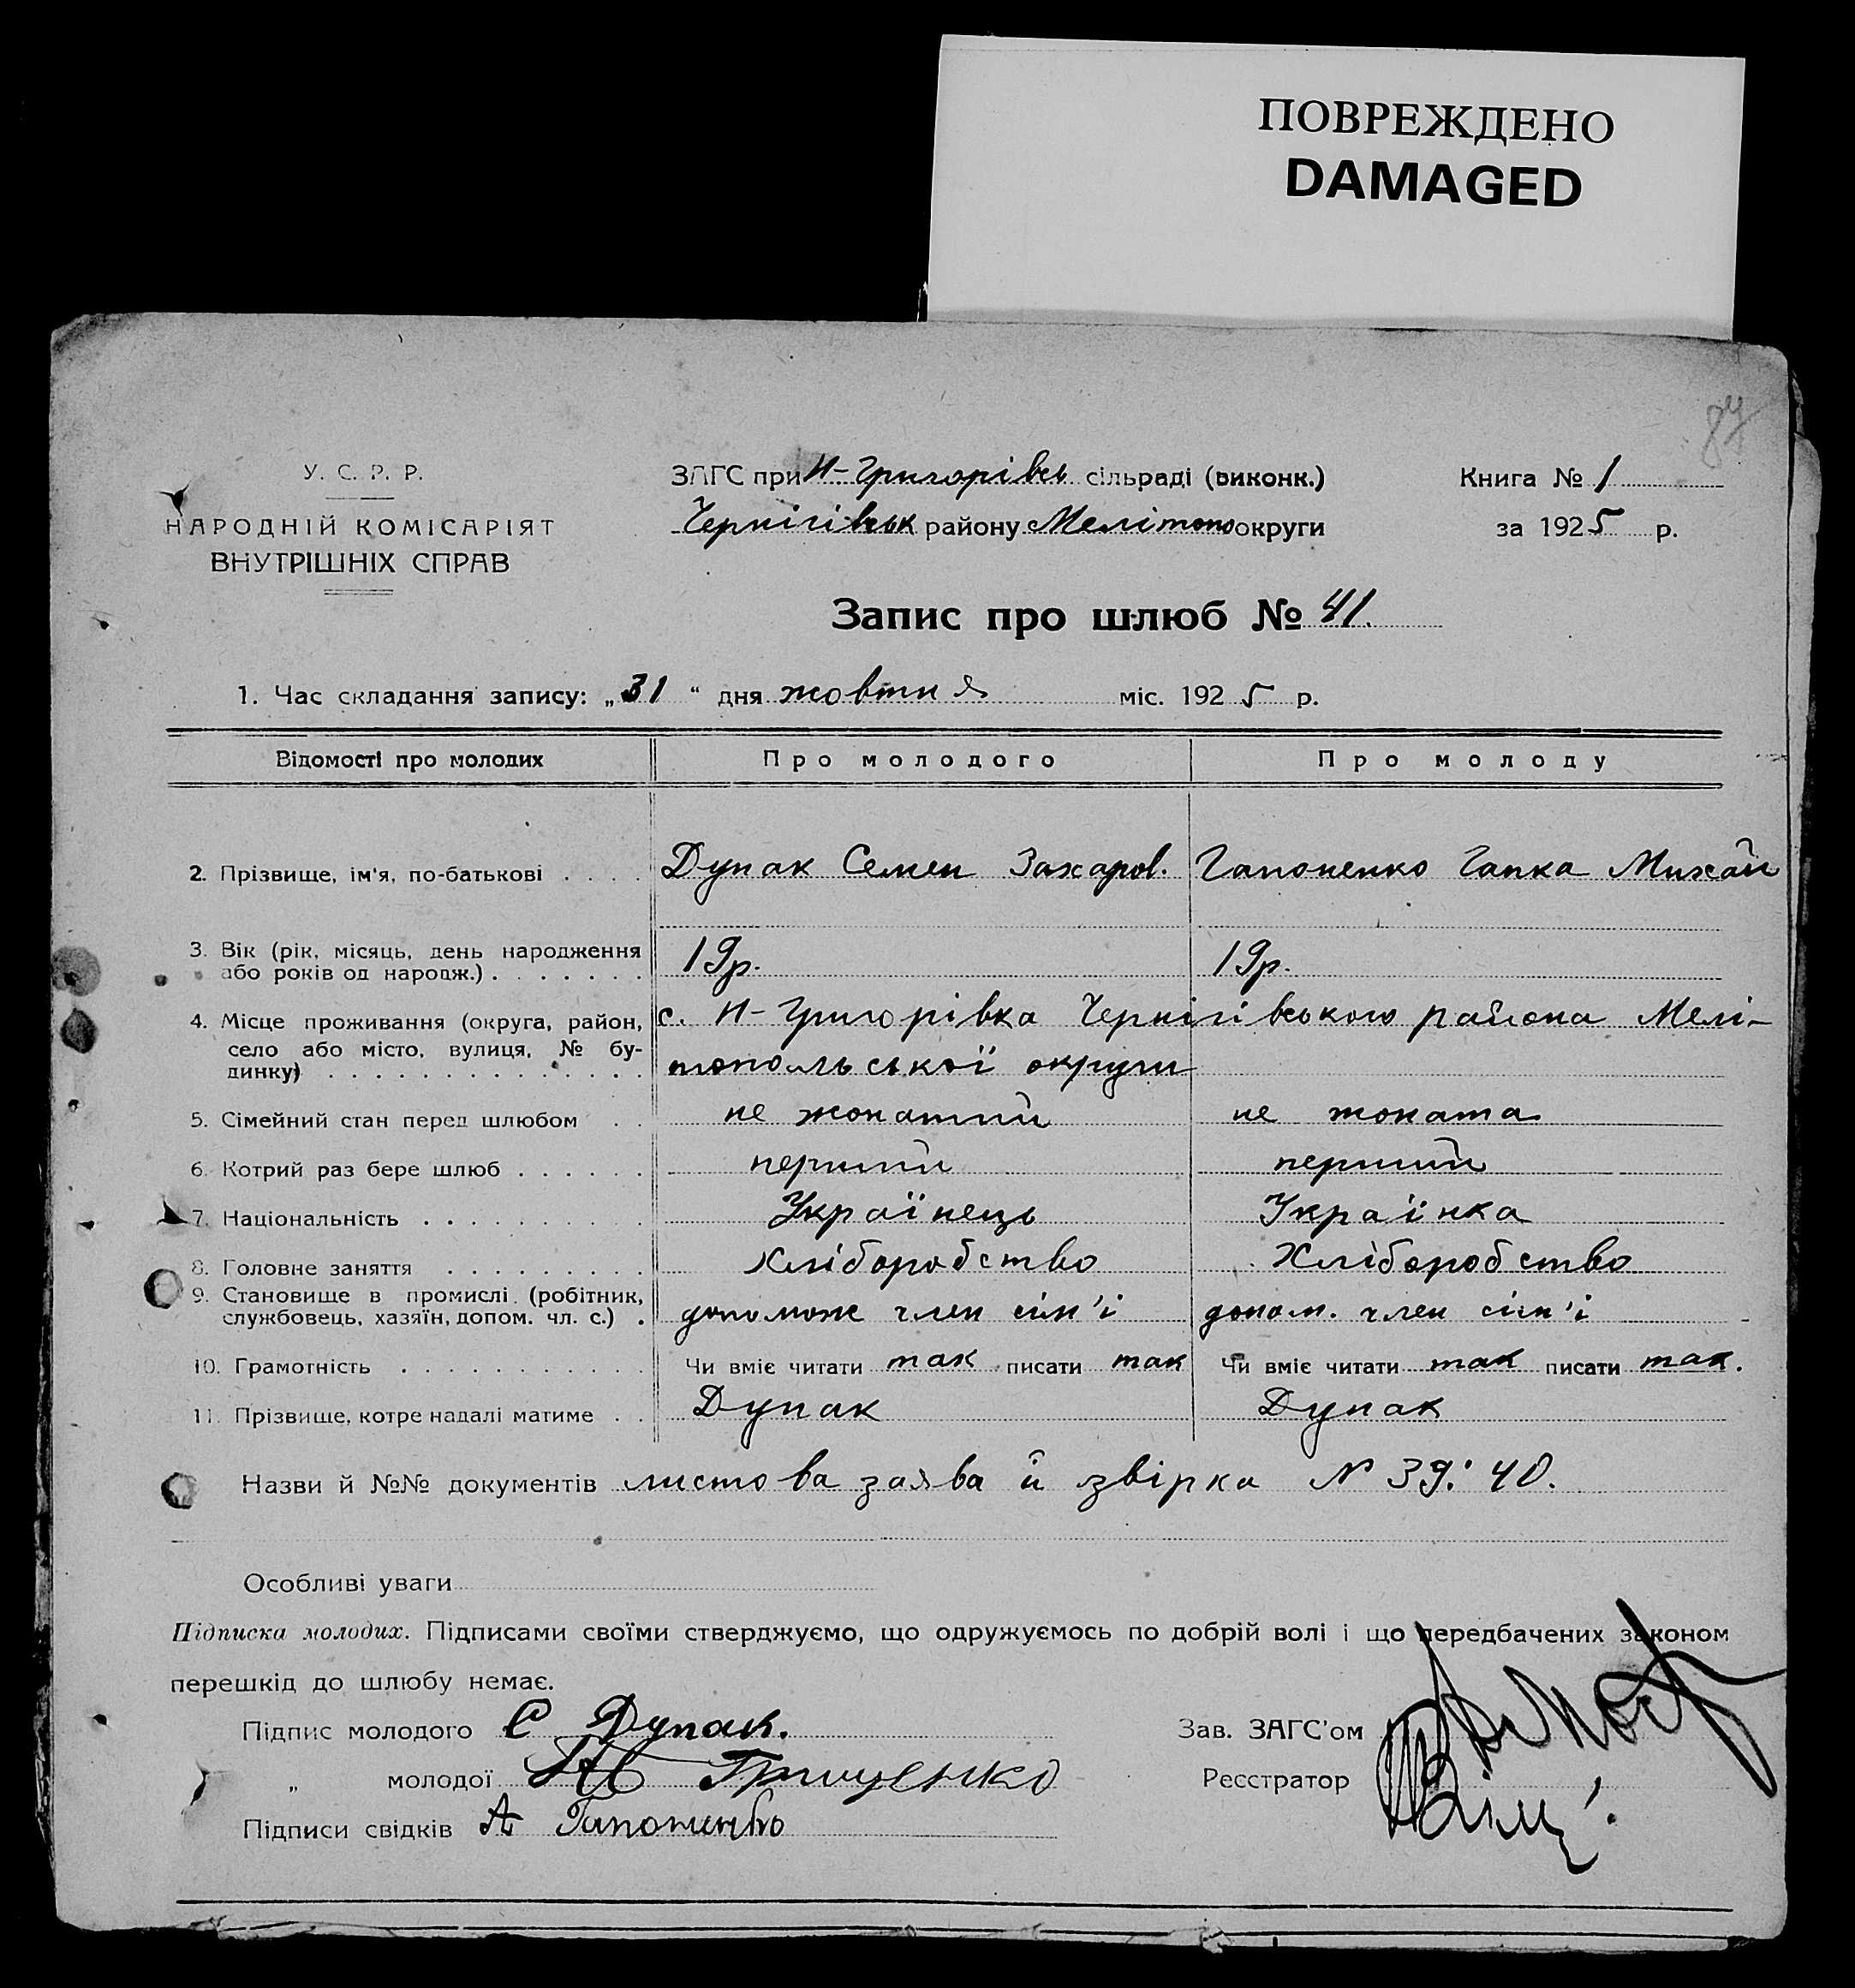 ПОВРЕЖДЕНО
DAMAGED
87
У. С. Р. Р.
НАРОДНІЙ КОМІСАРІЯТ
ВНУТРІШНІХ СПРАВ
ЗАГС при Н-Григорівсь сільраді (виконк.)
Чернігівськ району Мелітопо округи
Книга № 1
за 1925 р.
Запис про шлюб № 41.
1. Час складання запису: „31“ дня жовтня міс. 1925 р.
Відомості про молодих Про молодого Про молоду
2. Прізвище, ім'я, по-батькові . . . . Дупак Семен Захаров. Гапоненко Гапка Михай
3. Вік (рік, місяць, день народження
або років од народж.) . . . . . . . 19р. 19р.
4. Місце проживання (округа, район, с. Н-Григорівка Чернігівського района Мелі-
село або місто, вулиця, № бу-
динку) . . . . . . . . . . . . . . топольської округи
5. Сімейний стан перед шлюбом . . не жонатий не жоната
6. Котрий раз бере шлюб . . . . . . перший перший
7. Національність . . . . . . . . . Українець Українка
8. Головне заняття . . . . . . . . . Хліборобство Хліборобство
9. Становище в промислі (робітник,
службовець, хазяїн, допом. чл. с.) . допомож член сім'ї допом. член сім'ї
10. Грамотність . . . . . . . . . . Чи вміє читати так писати так Чи вміє читати так писати так.
11. Прізвище, котре надалі матиме . . Дупак Дупак
Назви й №№ документів листова заява й звірка № 39: 40.
Особливі уваги
Підписка молодих. Підписами своїми стверджуємо, що одружуємось по добрій волі і що передбачених законом
перешкід до шлюбу немає.
Підпис молодого С Дупак.
„ молодої Грищенко
Підписи свідків А Гапоненко
Зав. ЗАГС'ом
Реєстратор